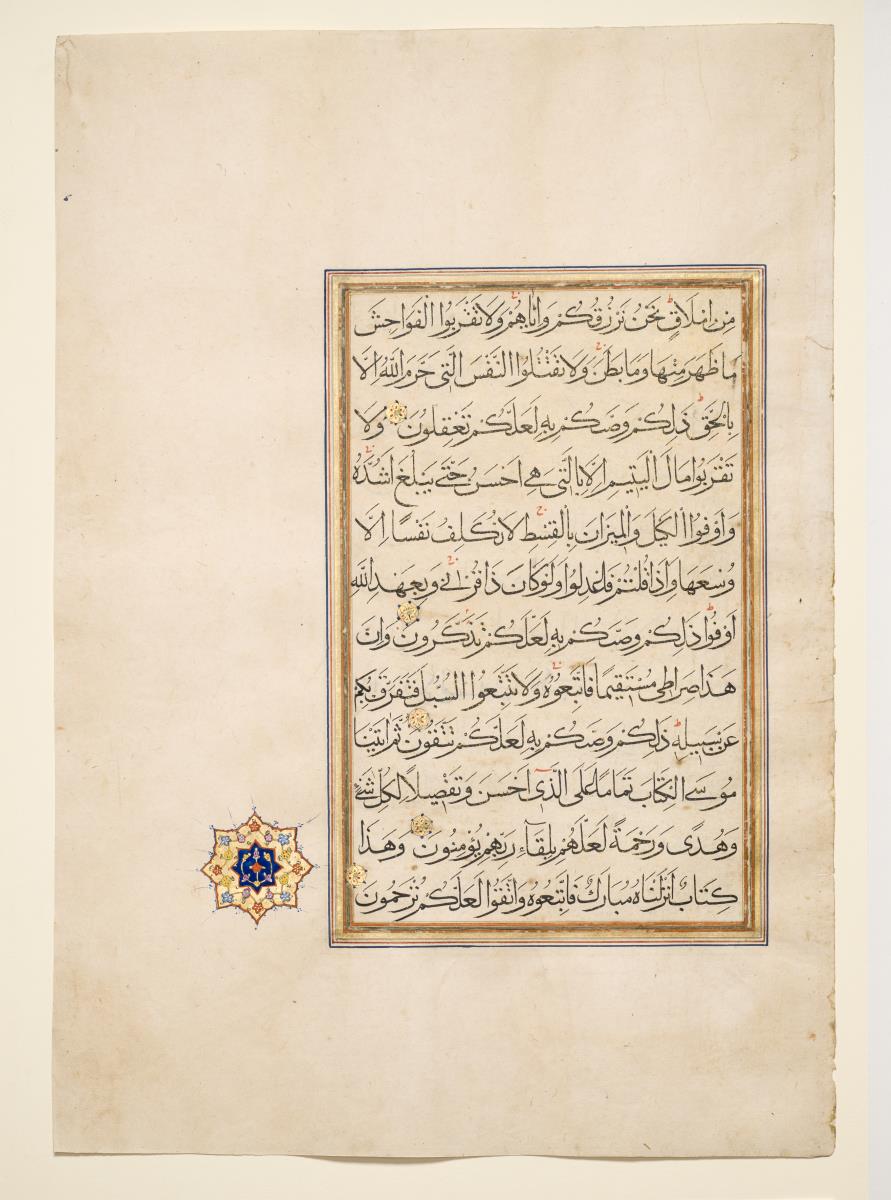 مِنْ اِمْلَاقٍ نَحْنُ نَرْزُقُكُمْ وَاِيَّاهُمْ وَلَا تَقْرَبُوا الْفَوَاحِشَ
مَا ظَهَرَ مِنْهَا وَمَا بَطَنَ وَلَا تَقْتُلُوا النَّفْسَ الَّتِي حَرَّمَ اللّٰهُ اِلَّا
بِالْحَقِّ ذٰلِكُمْ وَصّٰكُمْ بِهِ لَعَلَّكُمْ تَعْقِلُونَ وَلَا
تَقْرَبُوا مَالَ الْيَتِيمِ اِلَّا بِالَّتِي هِيَ اَحْسَنُ حَتّٰى يَبْلُغَ اَشُدَّهُ
وَاَوْفُوا الْكَيْلَ وَالْمِيزَانَ بِالْقِسْطِ لَا نُكَلِّفُ نَفْسًا اِلَّا
وُسْعَهَا وَاِذَا قُلْتُمْ فَاعْدِلُوا وَلَوْ كَانَ ذَا قُرْبٰى وَبِعَهْدِ اللّٰهِ
اَوْفُوا ذٰلِكُمْ وَصّٰكُمْ بِهِ لَعَلَّكُمْ تَذَكَّرُونَ وَاَنَّ
هٰذَا صِرَاطِي مُسْتَقِيمًا فَاتَّبِعُوهُ وَلَا تَتَّبِعُوا السُّبُلَ فَتَفَرَّقَ بِكُمْ
عَنْ سَبِيلِهِ ذٰلِكُمْ وَصّٰكُمْ بِهِ لَعَلَّكُمْ تَتَّقُونَ ثُمَّ اٰتَيْنَا
مُوسَى الْكِتَابَ تَمَامًا عَلَى الَّذِي اَحْسَنَ وَتَفْصِيلًا لِكُلِّ شَيْءٍ
وَهُدًى وَرَحْمَةً لَعَلَّهُمْ بِلِقَاءِ رَبِّهِمْ يُؤْمِنُونَ وَهٰذَا
كِتَابٌ اَنْزَلْنَاهُ مُبَارَكٌ فَاتَّبِعُوهُ وَاتَّقُوا لَعَلَّكُمْ تُرْحَمُونَ